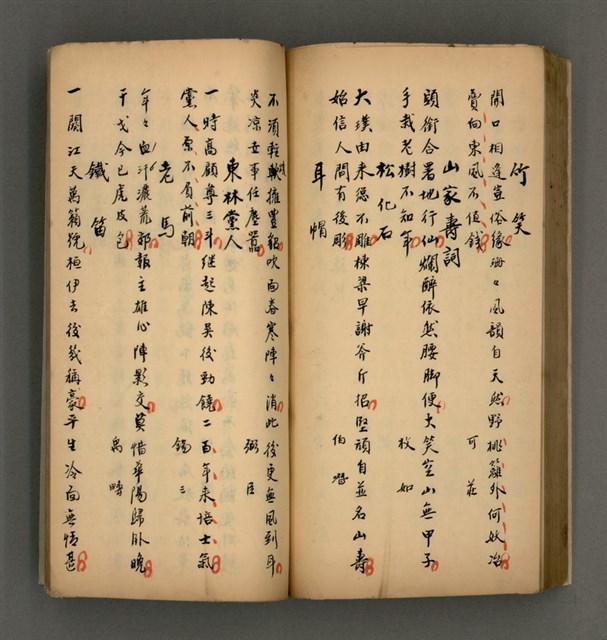 竹笑
開口相逢豈俗緣珊々風韻自天然野桃籬外何妖冶
賣向東風不值錢　可莊
山家壽詞
頭銜合署地行仙爛醉依然腰脚便大笑空山無甲子
手栽老樹不知年　枚如
松化石
大璞由来總不雕棟梁早謝斧斤招堅頑自並名山壽
始信人間有後彫　伯潛
耳帽
不須輕軟擁豊貂吹面春寒陣々消此後更無風到耳
炎涼世事任塵囂　弼臣
東林黨人
一時高顧尊三斗継起陳吳後勁饒二百年来培士氣
黨人原不負前朝　錫三
老馬
年々血汗濺荒郊報主雄心陣影交莫惜華陽歸卧晚
干戈今已虎皮包　禹疇
鐵笛
一闋江天萬籟號桓伊去後幾稱豪平生冷面無情甚